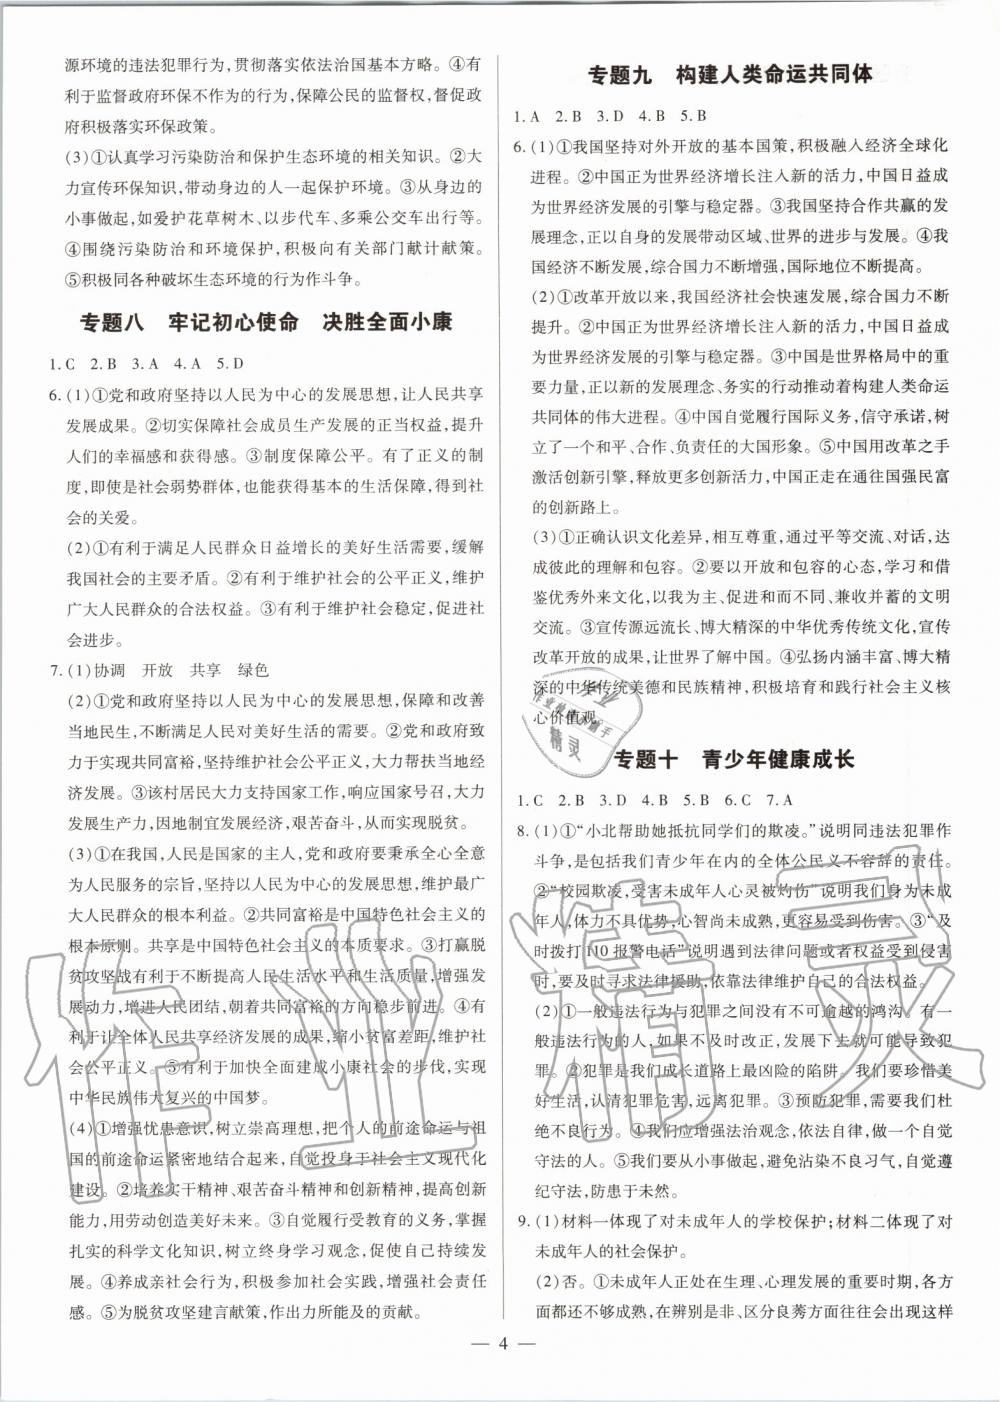 源环境的违法犯罪行为,贯彻落实依法治国基本方略。④有
利于监督政府环保不作为的行为,保障公民的监督权,督促政
府积极落实环保政策。
(3)①认真学习污染防治和保护生态环境的相关知识。②大
力宣传环保知识,带动身边的人一起保护环境。③从身边的
小事做起,如爱护花草树木、以步代车、多乘公交车出行等。
④围绕污染防治和环境保护,积极向有关部门献计献策。
⑤积极同各种破坏生态环境的行为作斗争。
专题八 牢记初心使命 决胜全面小康
1. C 2. B 3. A 4. A 5. D
6. (1)①党和政府坚持以人民为中心的发展思想,让人民共享
发展成果。②切实保障社会成员生产发展的正当权益,提升
人们的幸福感和获得感。③制度保障公平。有了正义的制
度,即使是社会弱势群体,也能获得基本的生活保障,得到社
会的关爱。
(2)①有利于满足人民群众日益增长的美好生活需要,缓解
我国社会的主要矛盾。②有利于维护社会的公平正义,维护
广大人民群众的合法权益。③有利于维护社会稳定,促进社
会进步。
7. (1)协调 开放 共享 绿色
(2)①党和政府坚持以人民为中心的发展思想,保障和改善
当地民生,不断满足人民对美好生活的需要。②党和政府致
力于实现共同富裕,坚持发展成果由人民共享,大力推动经
济发展。③该村居民大力支持国家工作,响应国家号召,大力
发展生产力,因地制宜发展经济,艰苦奋斗,从而实现脱贫。
(3)①在我国,人民是国家的主人,党和政府要秉承全心全意
为人民服务的宗旨,坚持以人民为中心的发展思想,维护最广
大人民群众的根本利益。②共同富裕是中国特色社会主义的
根本原则。共享是中国特色社会主义的本质要求。③打赢脱
贫攻坚战有利于不断提高人民生活水平和生活质量,增强发
展动力,增进人民团结,朝着共同富裕的方向稳步前进。④有
利于让全体人民共享经济发展的成果,缩小贫富差距,维护社
会公平正义。⑤有利于加快全面建成小康社会的步伐,实现
中华民族伟大复兴的中国梦。
(4)①增强忧患意识,树立崇高理想,把个人的前途命运与祖
国的前途命运紧密地结合起来,自觉投身于社会主义现代化
建设。②培养实干精神、艰苦奋斗精神和创新精神,提升创新
能力,用劳动创造美好未来。③自觉履行受教育的义务,掌握
扎实的科学文化知识,树立终身学习观念,促使自己持续发
展。④养成亲社会行为,积极参加社会实践,增强社会责任
感。⑤为脱贫攻坚建言献策,作出力所能及的贡献。
专题九 构建人类命运共同体
1. A 2. B 3. D 4. B 5. B
6. (1)①我国坚持对外开放的基本国策,积极融入经济全球化
进程。②中国正为世界经济增长注入新的活力,中国日益成
为世界经济发展的引擎与稳定器。③我国坚持合作共赢的发
展理念,正以自身的发展带动区域、世界的进步与发展。④我
国经济不断发展,综合国力不断增强,国际地位不断提高。
(2)①改革开放以来,我国经济社会快速发展,综合国力不断
提升。②中国正为世界经济增长注入新的活力,中国日益成
为世界经济发展的引擎与稳定器。③中国是世界格局中的重
要力量,正以新的发展理念、务实的行动推动着构建人类命运
共同体的伟大进程。④中国自觉履行国际义务,信守承诺,树
立了一个和平、合作、负责任的大国形象。⑤中国用改革之手
激活创新引擎,释放更多创新活力,中国正走在通往国强民富
的创新路上。
(3)①正确认识文化差异,相互尊重,通过平等交流、对话,达
成彼此的理解和包容。②要以开放和包容的心态,学习和借
鉴优秀外来文化,以我为主、促进和而不同、兼收并蓄的文明
交流。③宣传源远流长、博大精深的中华优秀传统文化,宣传
改革开放的成果,让世界了解中国。④弘扬内涵丰富、博大精
深的中华传统美德和民族精神,积极培育和践行社会主义核
心价值观。
专题十 青少年健康成长
1. C 2. B 3. D 4. B 5. B 6. C 7. A
8. (1)①“小北帮助她抵抗同学们的欺凌。”说明同违法犯罪作
斗争,是包括我们青少年在内的全体公民义不容辞的责任。
②“校园欺凌,受害未成年人心灵被灼伤”说明我们身为未成
年人,体力不具优势,心智尚未成熟,更容易受到伤害。③“及
时拨打110报警电话”说明遇到法律问题或者权益受到侵害
时,要及时寻求法律援助,依靠法律维护自己的合法权益。
(2)①一般违法行为与犯罪之间没有不可逾越的鸿沟。有一
般违法行为的人,如果不及时改正,发展下去就可能导致犯
罪。②犯罪是我们成长道路上最凶险的陷阱。我们要珍惜美
好生活,认清犯罪危害,远离犯罪。③预防犯罪,需要我们杜
绝不良行为。④我们应增强法治观念,依法自律,做一个自觉
守法的人。⑤我们要从小事做起,避免沾染不良习气,自觉遵
纪守法,防患于未然。
9. (1)材料一体现了对未成年人的学校保护;材料二体现了对
未成年人的社会保护。
(2)否。①未成年人正处在生理、心理发展的重要时期,各方
面都还不够成熟,在辨别是非、区分良莠方面往往会出现这样
— 4 —
作业精灵